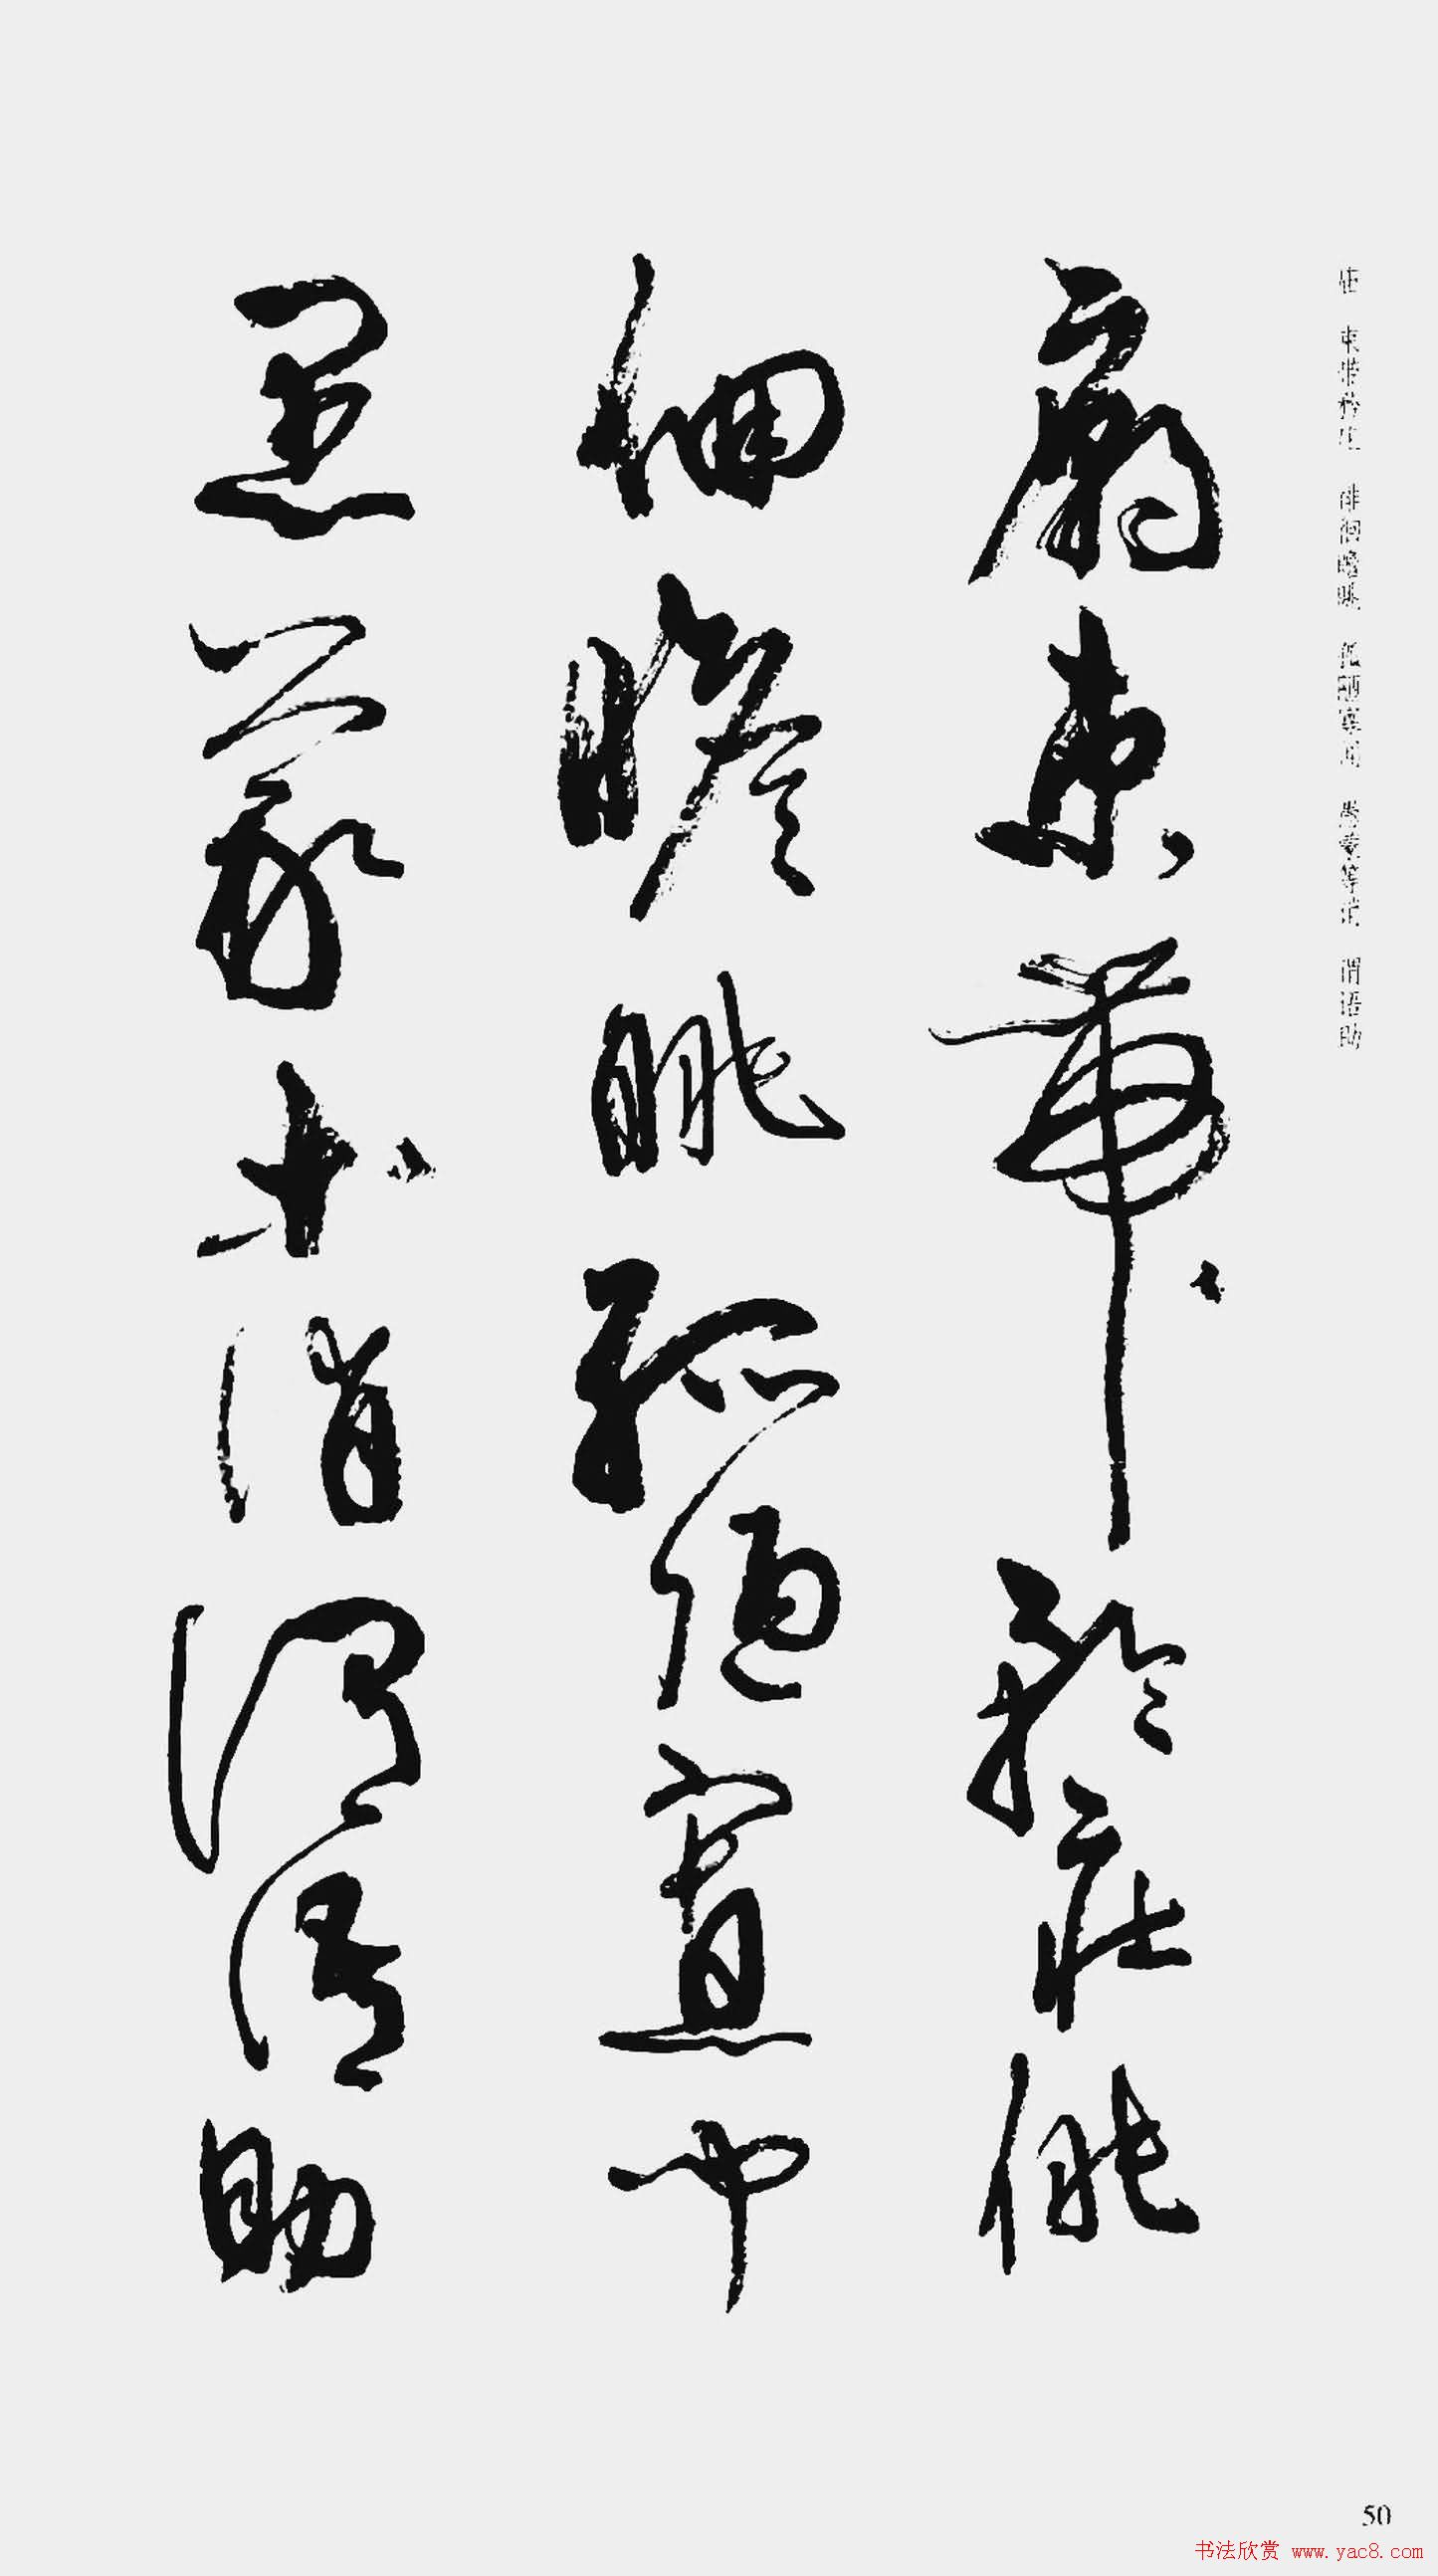 庙 束带矜庄 徘徊瞻眺 孤陋寡闻 愚蒙等诮 谓语助
廟束帶矜莊俳
佪瞻眺孤陋寡聞
愚蒙等誚謂語助
50
书法欣赏 www.yac8.com